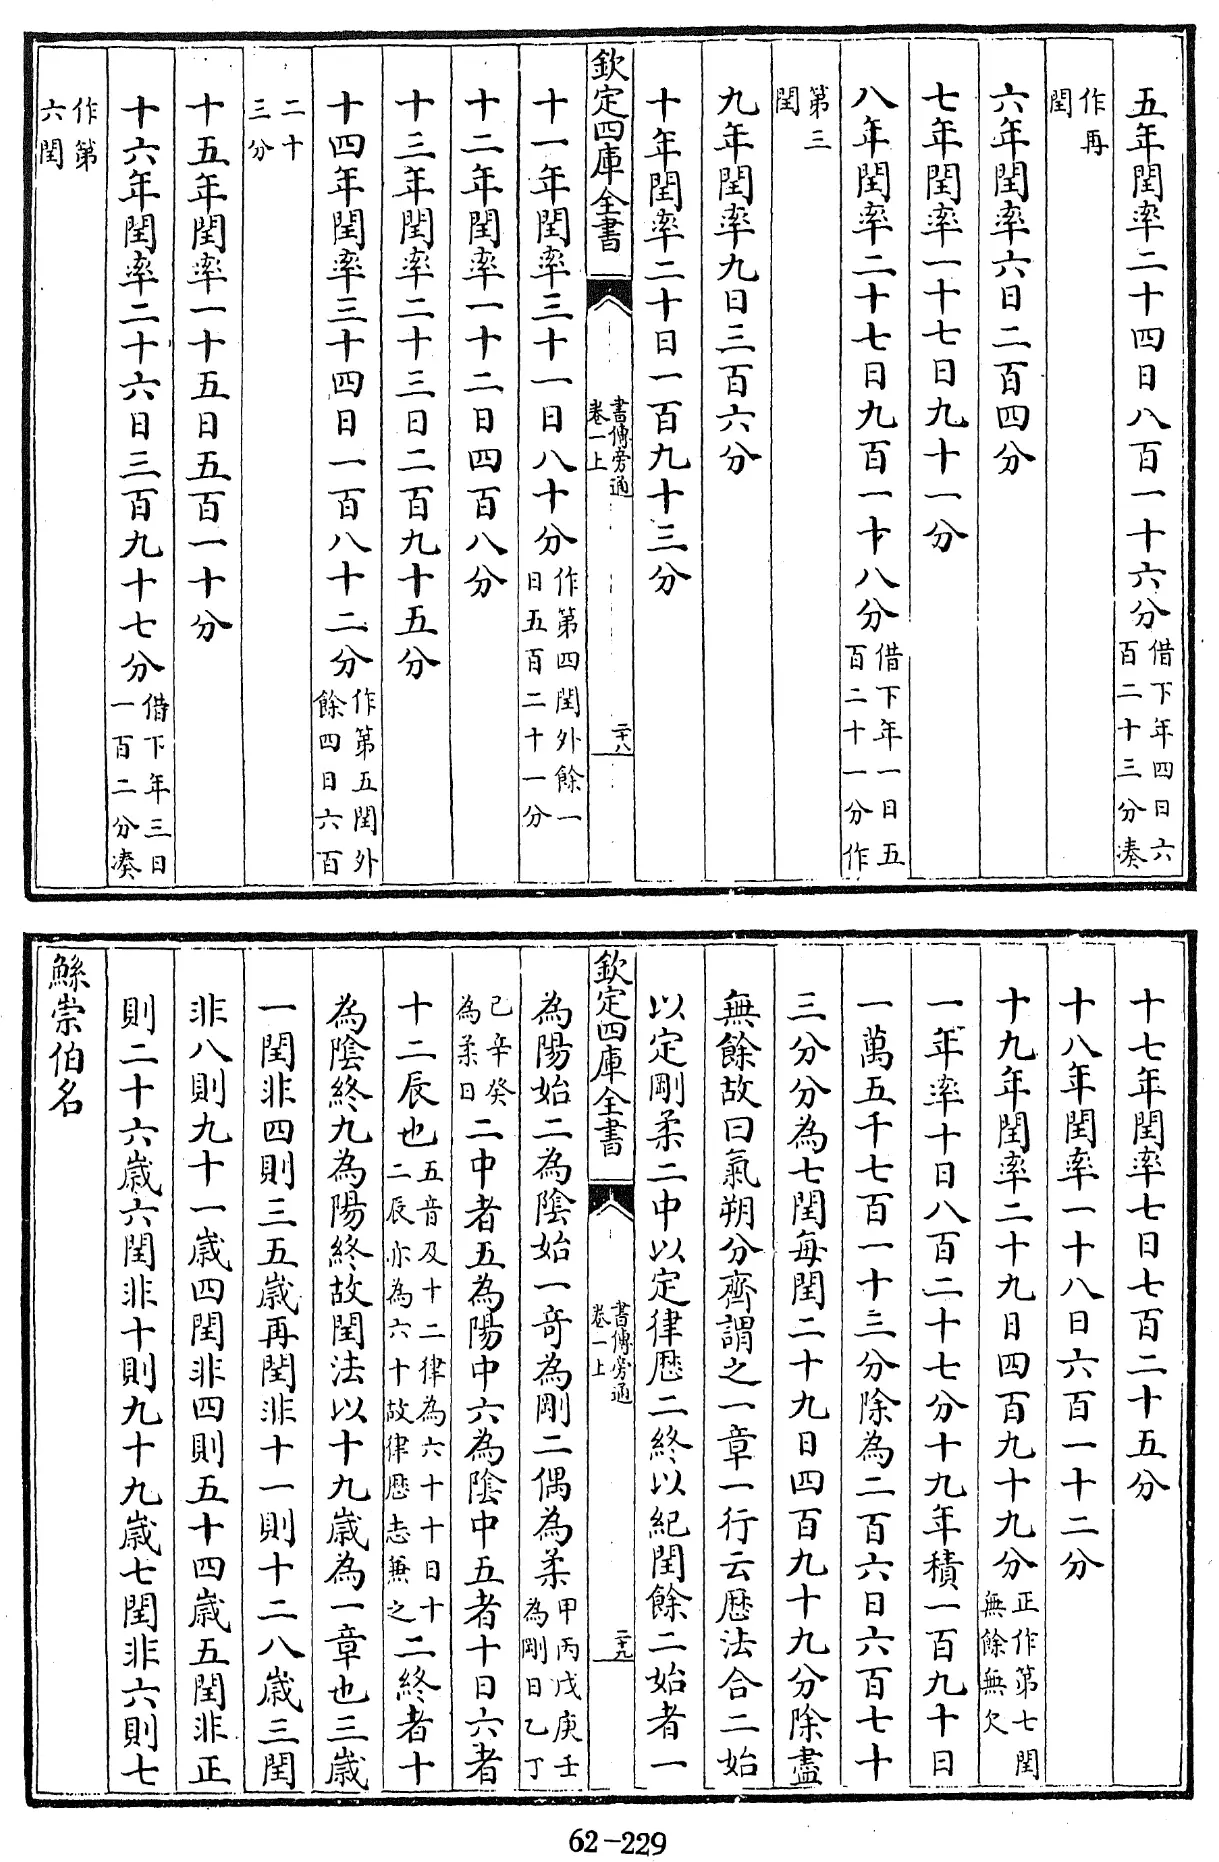 五年閏率二十四日八百一十六分借下年四日六百二十三分湊
作再閏
六年閏率六日二百四分
七年閏率一十七日九十一分
八年閏率二十七日九百一十八分借下年一日五百二十一分作
第三閏
九年閏率九日三百六分
十年閏率二十日一百九十三分
欽定四庫全書
書傳旁通
卷一上
二十八
十一年閏率三十一日八十分作第四閏外餘一日五百二十一分
十二年閏率一十二日四百八分
十三年閏率二十三日二百九十五分
十四年閏率三十四日一百八十二分作第五閏外餘四日六百
二十三分
十五年閏率一十五日五百一十分
十六年閏率二十六日三百九十七分借下年三日一百二分湊
作第六閏
十七年閏率七日七百二十五分
十八年閏率一十八日六百一十二分
十九年閏率二十九日四百九十九分正作第七閏無餘無欠
一年率十日八百二十七分十九年積一百九十日
一萬五千七百一十三分除為二百六日六百七十
三分分為七閏每閏二十九日四百九十九分除盡
無餘故曰氣朔分齊謂之一章一行云厯法合二始
以定剛柔二中以定律厯二終以紀閏餘二始者一
欽定四庫全書
書傳旁通
卷一上
二十九
為陽始二為陰始一竒為剛二偶為柔甲丙戊庚壬為剛日乙丁
己辛癸為柔日二中者五為陽中六為陰中五者十日六者
十二辰也五音及十二律為六十十日十二辰亦為六十故律厯志兼之二終者十
為陰終九為陽終故閏法以十九歳為一章也三歳
一閏非四則三五歳再閏非十一則十二八歳三閏
非八則九十一歳四閏非四則五十四歳五閏非正
則二十六歳六閏非十則九十九歳七閏非六則七
鯀崇伯名
62-229